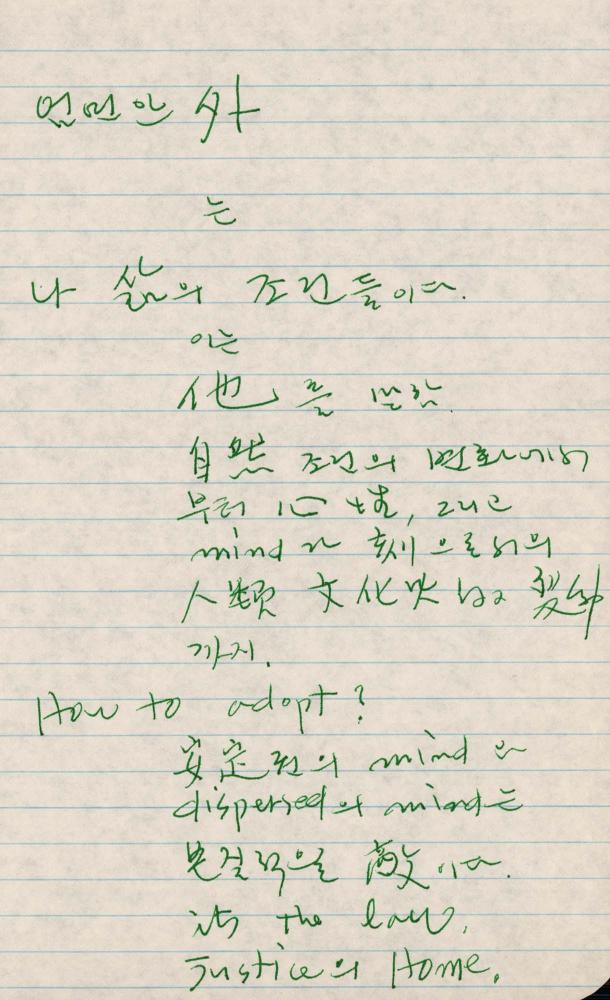 엄연한 外
는
나 삶의 조건들이다.
이는
他를 말함.
自然 조건의 변화에서
부터 心性, 그리고
mind 刻으로서의
人類 文化 的
까지.
How to adopt?
安定된의 mind
dispersed의 mind는
敵이다.
its the law.
Justice의 Home.